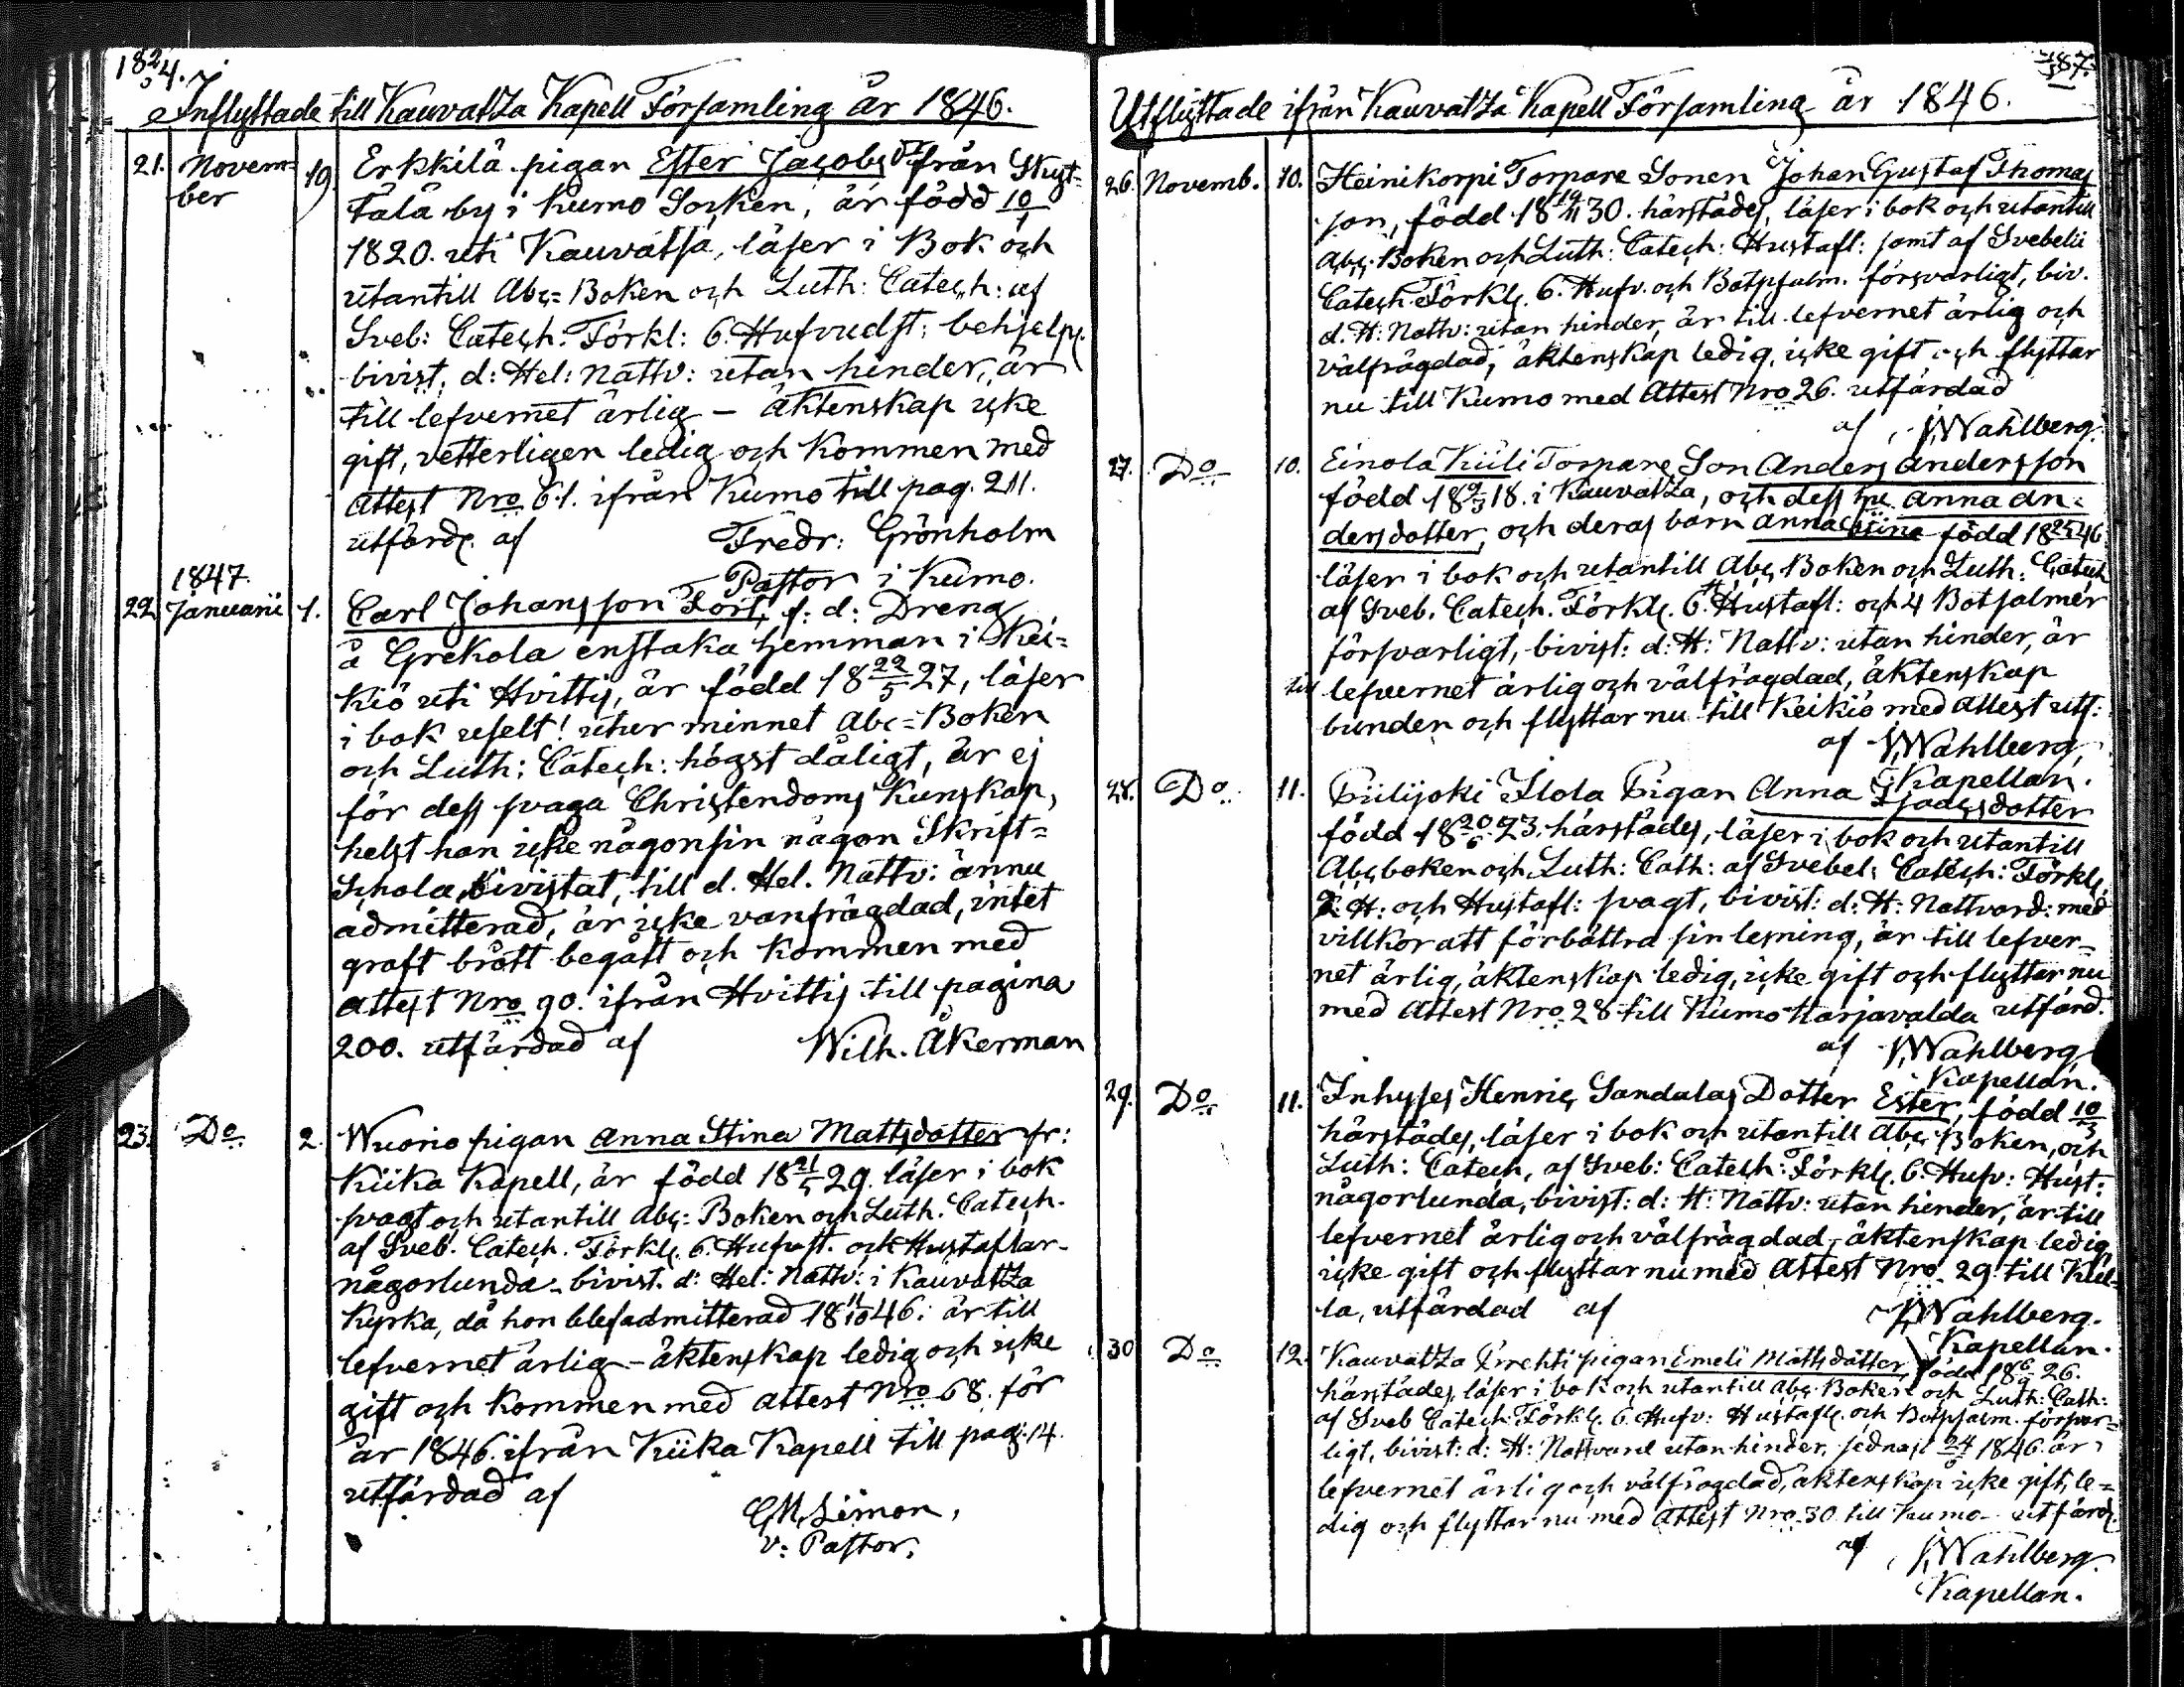 Inflyttade till Kauvatza Kapell Församling år 1846.
21. Novem= 19. Erkkilä pigan Ester Jacobs Dr från Skyt=
ber tälä by i Kumo Socken, är född 10/
1820. uti Kauvatsa, läser i Bok och
utantill Abc=Boken och Luth: Catech: af
Sveb: Catech: Förkl: 6. Hufvudst: behjelpl.
bivist. d: Hel: Nattv: utan hinder, är
till lefvernet ärlig – äktenskap icke
gift, vetterligen ledig och Kommen med
Attest Nro 61. ifrån Kumo till pag. 211.
utfärd. af Fredr: Grönholm
Pastor i Kumo.
1847.
22. Januarii 1. Carl Johansson Fors, f: d: Dreng
å Grekola enstaka hemman i Kei=
kiö uti Hvittis, är född 18 22/5 27, läser
i bok uselt! utur minnet Abc=Boken
och Luth: Catech: högst dåligt, är ej
för dess svaga Christendoms Kunskap,
helst han icke någonsin någon Skrift=
Schola bivistat, till d. Hel. Nattv: ännu
admitterad, är icke vanfrägdad, intet
groft brått begått och kommen med
Attest Nro 90. ifrån Hvittis till pagina
200. utfärdad af Wilh. Åkerman
23. Do 2. Wuorio pigan Anna Stina Mattsdotter fr:
Kiika Kapell, är född 18 21/5 29. läser i bok
svagt och utantill Abc=Boken och Luth. Catech.
af Sveb. Catech. Förkl. 6. Hufvst. och Hustaflar
någorlunda – bivist. d: Hel: Nattv: i Kauvatza
Kyrka, då hon blef admitterad 18 11/10 46: är till
lefvernet ärlig – äktenskap ledig och icke
gift och kommen med Attest Nro 68. för
år 1846. ifrån Kiika Kapell till pag. 14.
utfärdad af
GM, Limon,
v: Pastor.
Utflyttade ifrån Kauvatza Kapell Församling år 1846.
26. Novemb. 10. Heinikorpi Torpare Sonen Johan Gustaf Thomas
son, född 18 19/11 30. härstädes, läser i bok och utantill
Abc. Boken och Luth: Catech: Hustafl: samt af Svebelii
Catech. Förkl. 6. Hufv. och Botpsalm. försvarligt, biv.
d. H: Nattv: utan hinder, är till lefvernet ärlig och
välfrägdad, äktenskap ledig, icke gift och flyttar
nu till Kumo med Attest Nro 26. utfärdad
af J. Wahlberg.
27. Do 10. Einola Kiili Torpare Son Anders Andersson
född 18 9/3 18. i Kauvatza, och dess hu. Anna An=
dersdotter, och deras barn Anna Stina född 18 46
läser i bok och utantill Abc Boken och Luth: Catech
af Sveb. Catech. Förkl. 6. H Hustafl: och 4 Botsalmer
försvarligt, bivist: d: H: Nattv: utan hinder, är
till lefvernet ärlig och välfrägdad, äktenskap
bunden och flyttar nu till Keikiö med Attest utf:
af J. Wahlberg,
Kapellan.
28. Do 11. Piilijoki Ilola Pigan Anna Isacsdotter
född 18 23. härstädes, läser i bok och utantill
Abc boken och Luth: Cath: af Svebel: Catech: Förkl.
2. H: och Hustafl: svagt, bivist: d: H: Nattvard: med
villkor att förbättra sin lesning, är till lefver=
net ärlig, äktenskap ledig, icke gift och flyttar nu
med Attest Nro 28 till Kumo Harjavalda utfärd.
af J. Wahlberg
Kapellan.
29. Do 11. Inhyses Henric Sandalas Dotter Ester, född 10/3
härstädes, läser i bok och utantill Abc Boken, och
Luth: Catech, af Sveb: Catech: Förkl. 6. Hufv: Hust:
någorlunda, bivist: d: H: Nattv: utan hinder, är till
lefvernet ärlig och välfrägdad, äktenskap ledig,
icke gift och flyttar nu med Attest Nro 29. till Kiul=
la, utfärdad af J. Wahlberg.
Kapellan.
30 Do 12. Kauvatza Prehti pigan Emeli Mattsdotter, född 18 6/9 26.
härstädes, läser i bok och utantill Abc Boken och Luth: Cath:
af Sveb Catech: Förkl. 6. Hufv: Hustafl. och Botpsalm. försvar=
ligt, bivist: d: H: Nattvard utan hinder, sednast 1846. är
lefvernet ärlig och välfrägdad, äktenskap icke gift, le=
dig och flyttar nu med Attest Nro 30 till Kumo – utfärd.
af J. Wahlberg.
Kapellan.